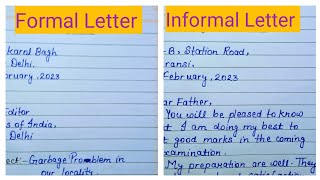 Formal Letter
karni Bagh
Delhi.
bruary, 2023
Editor
s of India,
Delhi
ect:- Garbage Problem in
our locality.
Informal Letter
-B, Station Road,
ransi.
February, 2023
ar Father,
You will be pleased to know
I am doing my best to
good marks in the coming
xamination.
My preparation are well. They